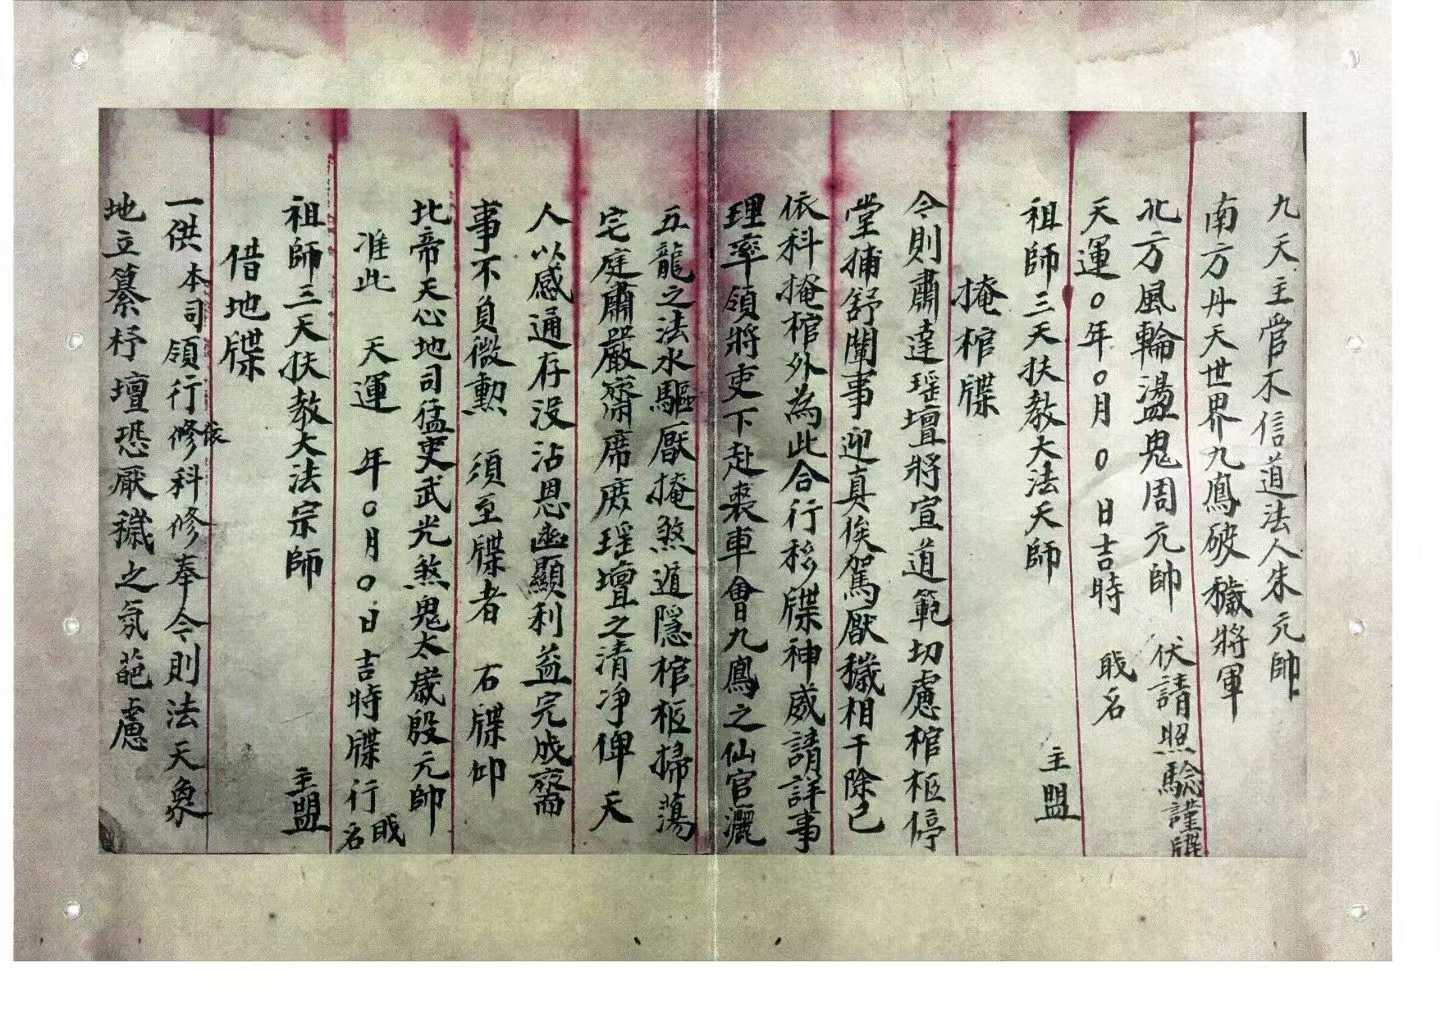 九天主管不信道法人朱元帥
南方丹天世界九鳳破穢將軍
北方風輪盪鬼周元帥　伏請照驗謹牒
天運〇年〇月〇日吉時　戝名
祖師三天扶教大法天師　主盟
掩棺牒
令則肅達瑶壇將宣道範切慮棺柩停
堂捕舒闈事迎真俟駕厭穢相干除已
依科掩棺外為此合行移牒神威請詳事
理率領將吏下赴喪車會九鳳之仙官灑
五龍之法水驅厭掩煞遁隱棺柩掃蕩
宅庭肅嚴齋席庶瑶壇之清净俾天
人以感通存没沾恩幽顯利益完成齋
事不負微勲　須至牒者　右牒仰
北帝天心地司猛吏武光煞鬼太歲殷元帥
准此　天運　年〇月〇日吉時牒行　戝名
祖師三天扶教大法宗師　主盟
借地牒
一供本司領行修依科修奉令則法天象
地立纂杼壇恐厭穢之氛葩慮